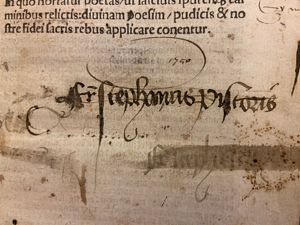 In quo hortatur poetas/ut lasciuis spurcisq; car
minibus relictis: diuinam Poesim/pudicis & no
stre fidei sacris rebus applicare conentur.
1750
Fr Stephanus Pistoris